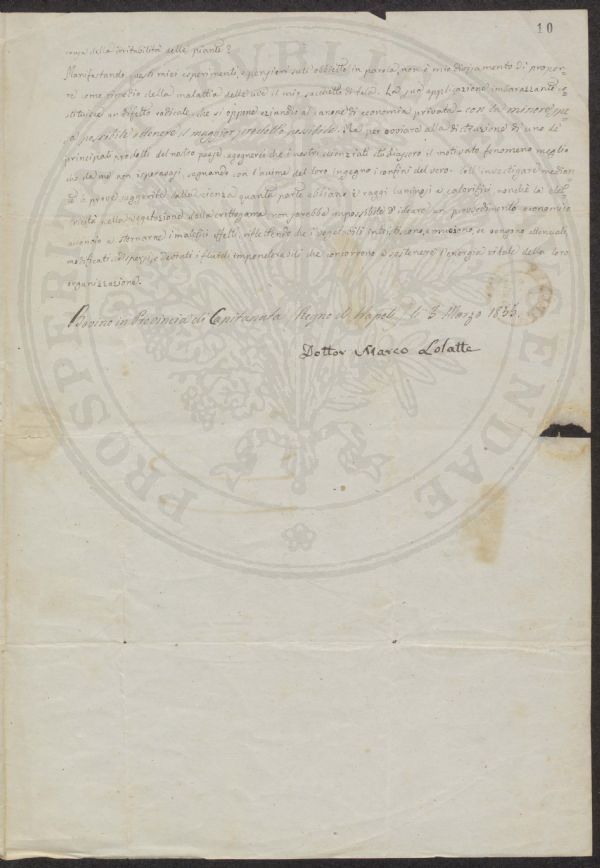 10
causa della irritabilità delle piante?
Manifestando questi miei esperimenti, e pensieri sull'obbietto in parola, non è mio divisamento di propor-
re come rimedio della malattia delle uve il mio sacchetto di tela. La sua applicazione imbarazzante co-
stituisce un difetto radicale, che si oppone eziandio al canone di economia privata – con la minore spe-
sa possibile ottenere il maggior prodotto possibile. Ma per ovviare alla distruzione di uno de'
principali prodotti del nostro paese, che i nostri scienziati il motivato fenomeno meglio
che da me non, segnando con l'acume del loro ingegno i confini del vero. Coll'investigare median-
te prove suggerite dalla scienza quanta parte abbiano i raggi luminosi e caloriferi, nonchè la elet-
tricità nella vegetazione della crittogama non sarebbe impossibile d'ideare un provvedimento economico
onde stornarne i malefici effetti, riflettendo che i vegetabili se vengono
modificati, i fluidi imponderabili che concorrono a sostenere l'energia vitale della loro
organizzazione.
Bovino in Provincia di Capitanata, Regno di Napoli, li 3 Marzo 1855.
Dottor Marco Lolatte
PROSPERITATI PUBLICAE AUGENDAE